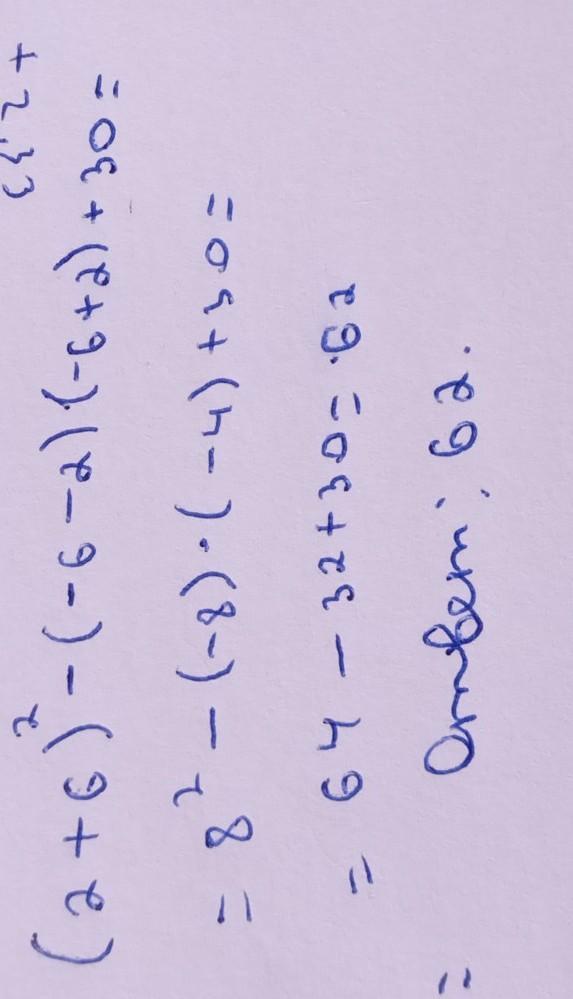 (2+6)² - (-6-2)(-6+2) + 30 =
= 8² - (-8)·(-4) + 30 =
= 64 - 32 + 30 = 62
Ответ: 62.
=